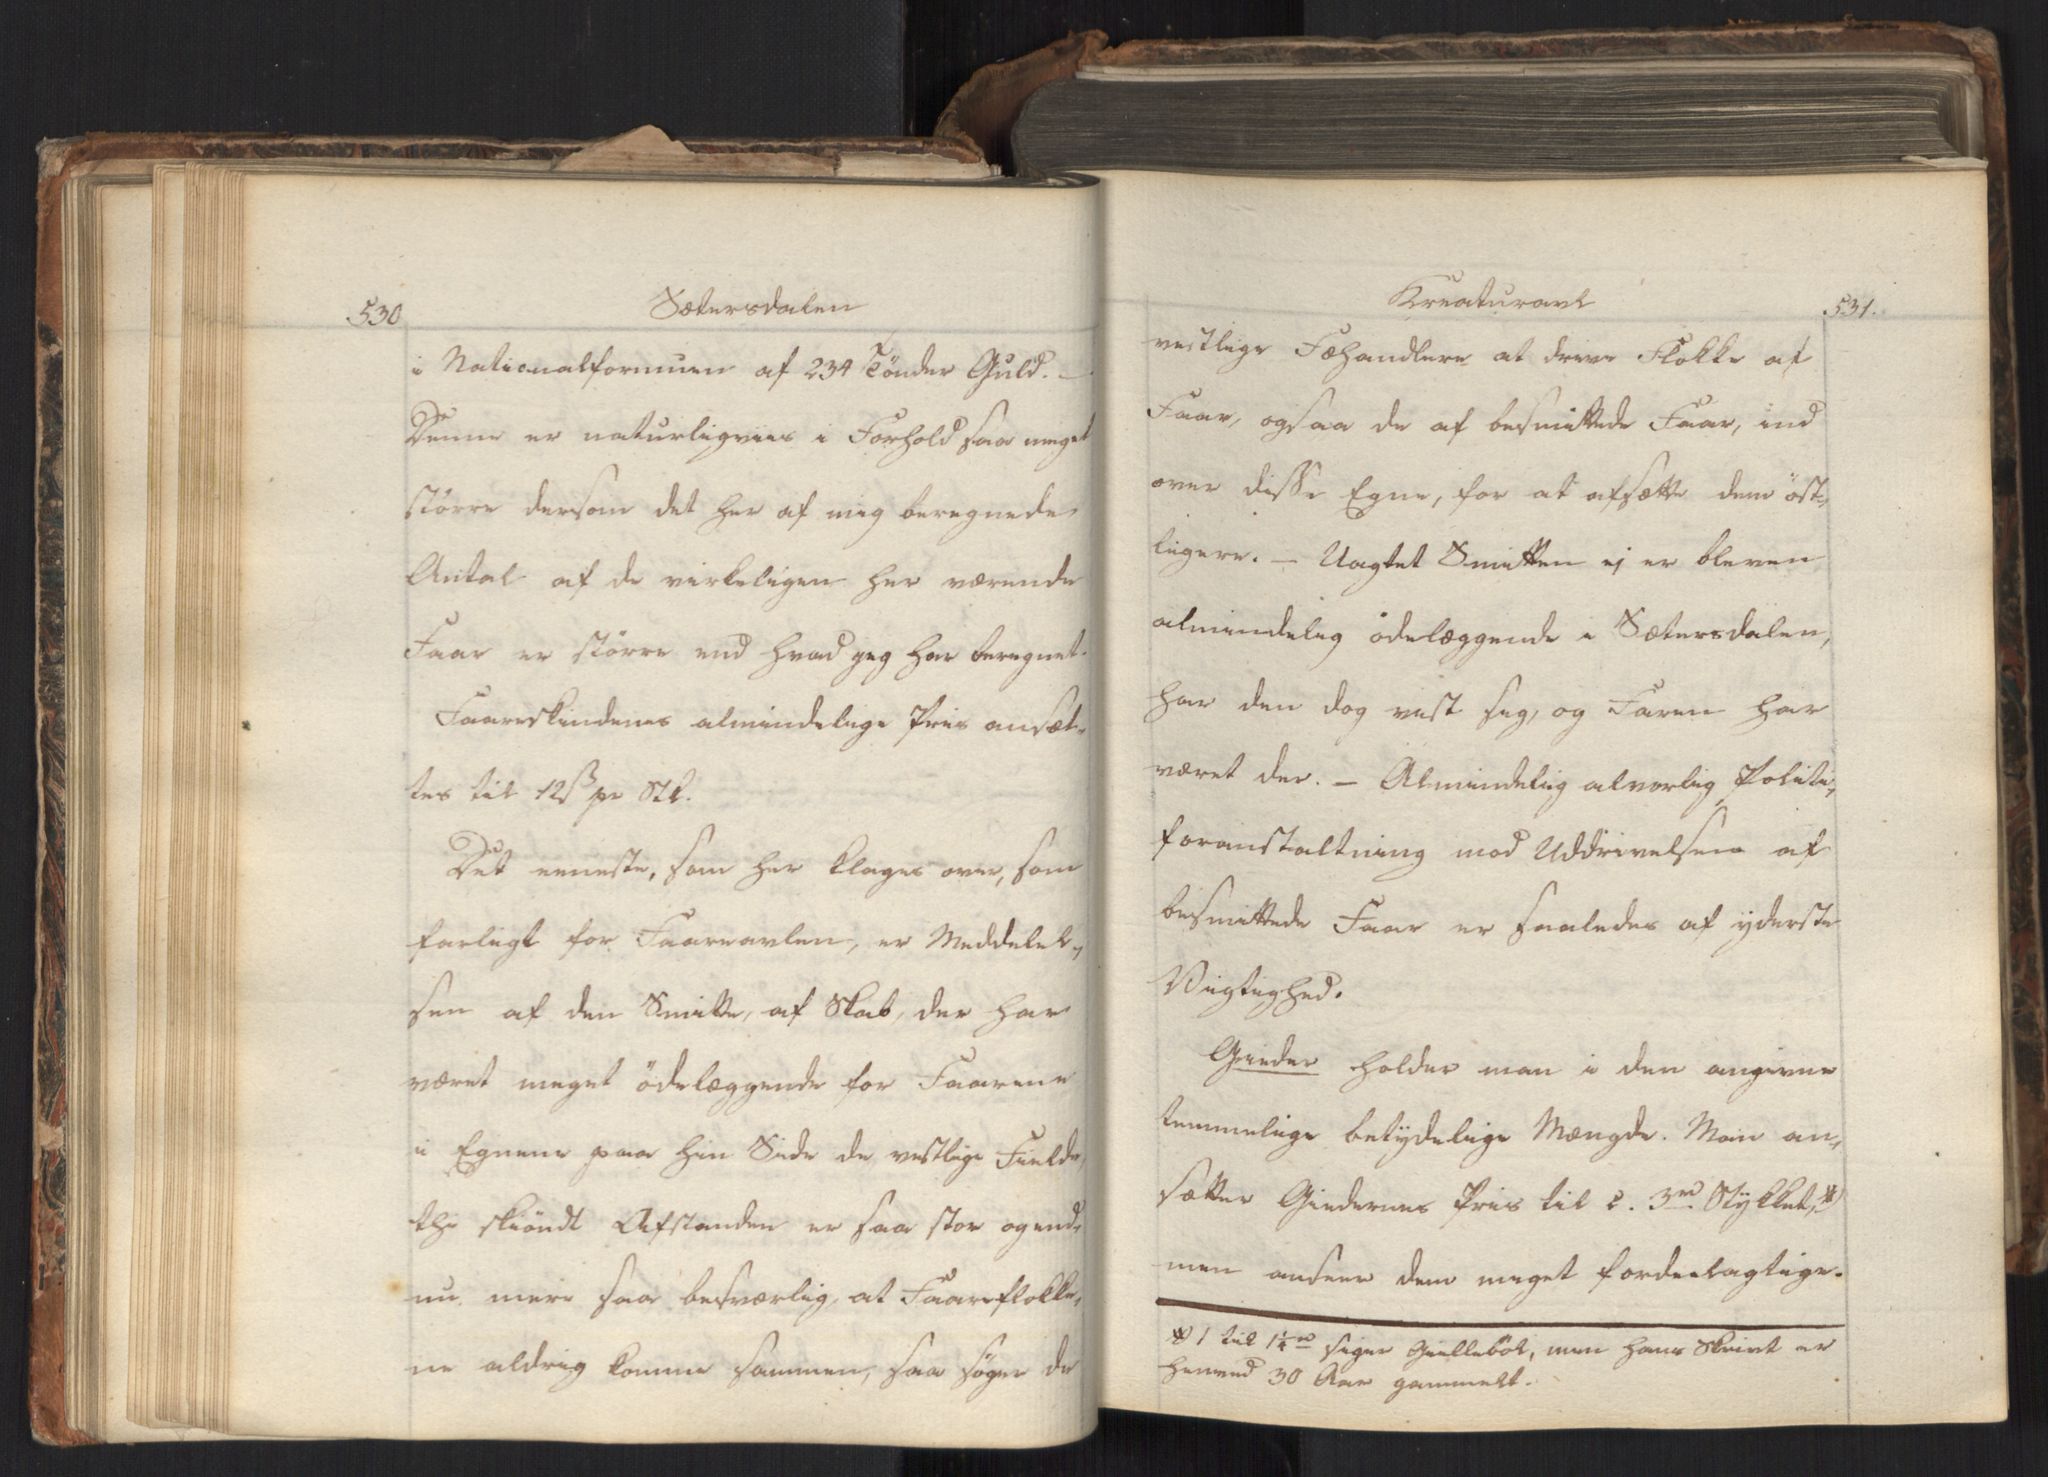 530
Sætersdalen
i Nationalformuen af 234 Tönder Guld. –
Denne er naturligviis i Forhold saa meget
större dersom det her af mig beregnede
Antal af de virkeligen her værende
Faar er större end hvad jeg har beregnet.
Faareskindenes almindelige Priis ansæt-
tes til 12 ß pr Stk.
Det eeneste, som her klages over, som
farligt for Faareavlen, er Meddelel-
sen af den Smitte, af Skab, der har
været meget ödelæggende for Faarene
i Egnene paa hin Side de vestlige Fielde,
thi skiöndt Afstanden er saa stor og end-
nu mere saa besværlig, at Faareflokke-
ne aldrig komme sammen, saa söger de
Kreaturavl
531.
vestlige Fæhandlere at drive Flokke af
Faar, ogsaa de af besmittede Faar, ind
over disse Egne, for at afsætte dem öst-
ligere. – Uagtet Smitten ej er bleven
almindelig ödelæggende i Sætersdalen,
har den dog viist sig, og Faren har
været der. – Almindelig alvorlig Politi-
foranstaltning mod Uddrivelsen af
besmittede Faar er saaledes af yderste
Vigtighed.
Gieder holder man i den angivne
temmelige betydelige Mængde. Man an-
sætter Giedernes Priis til c. 3 rd Stykket,*)
men anseer dem meget fordeelagtige.
*) 1 til 1¼ rd siger Gielleböl, men hans Skrivt er
henved 30 Aar gammelt.